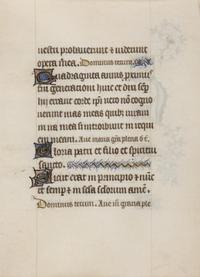 uestri probauerunt et uiderunt
opera mea. Dominus tecum.
Quadraginta annis proxim᷒
fui generationi huic et dixi semp
hij errant corde ipsi uero nō cogno
uerunt uias meas quib᷒ iuraui
in ira mea si introibunt in requi
em meam. Aue maria grā plena
Gloria patri et filio et spiritui
sancto.
Sicut erat in principio et nūc
et semp et in scła scłorum amē.
Dominus tecum. Aue mā gratia ple